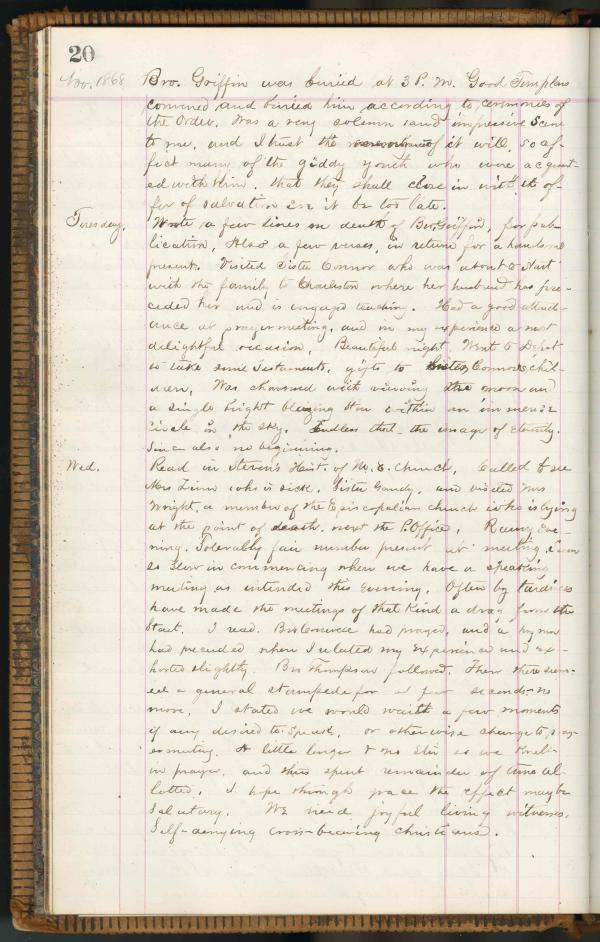 20
Nov. 1868 Bro. Griffin was buried at 3 P. M. Good Templars
convened and buried him according to ceremonies of
the Order. Was a very solemn and impressive Scene
to me, and I trust the of it will so af-
fect many of the giddy youth who were acquaint-
ed with Him, that they shall close in with the of-
fer of salvation ere it be too late.
Tuesday. Wrote a few lines on death of Bro. Griffin, for pub-
lication, Also a few verses, in return for a handsome
present. Visited Sister Connor who was about to start
with the family to Charleston where her husband has pre-
ceded her and is engaged teaching. Had a good attend-
ance at prayermeeting, and in my experience a most
delightful occasion. Beautiful night. Went to Depot
to take some Testaments, gifts to Sister Connors chil-
dren, Was charmed with viewing the moon and
a single bright blazing star within an immense
circle in the sky. Endless that - the image of Eternity.
Since also no beginning.
Wed. Read in Steven's Hist. of M. E. Church, Called to see
Mrs who is sick, Sister Gandy, and visited Mrs
Wright, a member of the Episcopalian church who is lying
at the point of death, near the P. Office, Rainy Eve-
ning. Tolerably fair number present at meeting,
so slow in commencing when we have a speaking
meeting as intended this Evening. Often by tardiness
have made the meetings of that Kind a drag from the
Start. I read, Bro had prayed, and a hymn
had preceded when I related my experience and ex-
horted slightly. Bro Thompson followed. Then there seem-
ed a general stampede for a few seconds - no
more, I stated we would wait a few moments
if any desired to Speak, or otherwise change to pray-
ermeeting. A little longer & no Stir so we Knelt
in prayer, and thus spent remainder of time al-
lotted. I hope through grace the effect may be
salutary. We need joyful living witnesses,
Self-denying cross-bearing christians.